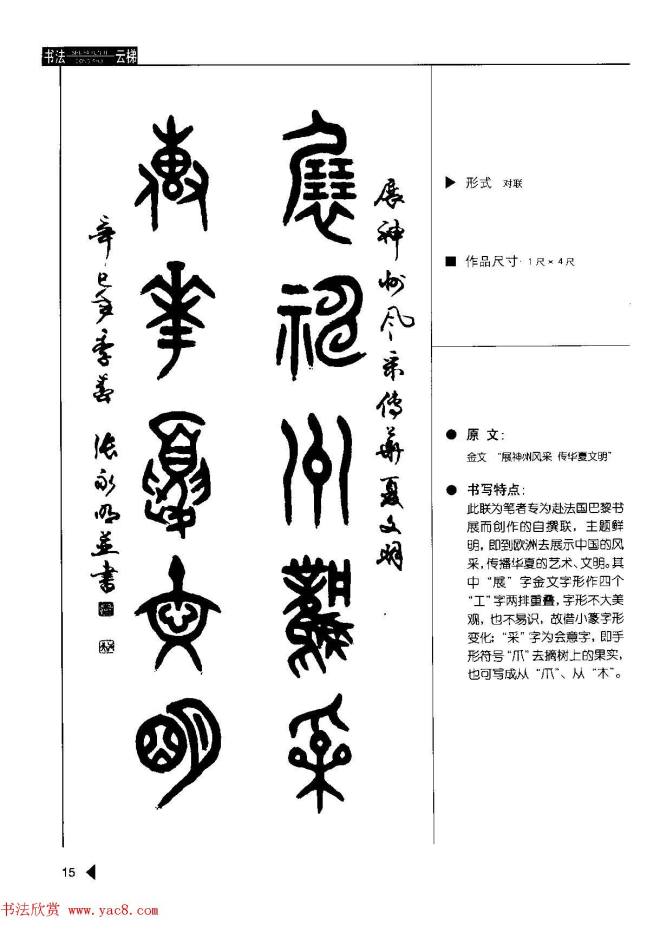 书法 云梯
展神州风采
传华夏文明
展神州风采傳華夏文明
辛巳年季春 张永明并書
▶ 形式 对联
■ 作品尺寸：1尺×4尺
● 原文：
金文 “展神州风采 传华夏文明”
● 书写特点：
此联为笔者专为赴法国巴黎书
展而创作的自撰联，主题鲜
明，即到欧洲去展示中国的风
采，传播华夏的艺术、文明。其
中“展”字金文字形作四个
“工”字两排重叠，字形不大美
观，也不易识，故借小篆字形
变化；“采”字为会意字，即手
形符号“爪”去摘树上的果实，
也可写成从“爪”、从“木”。
15
书法欣赏 www.yac8.com